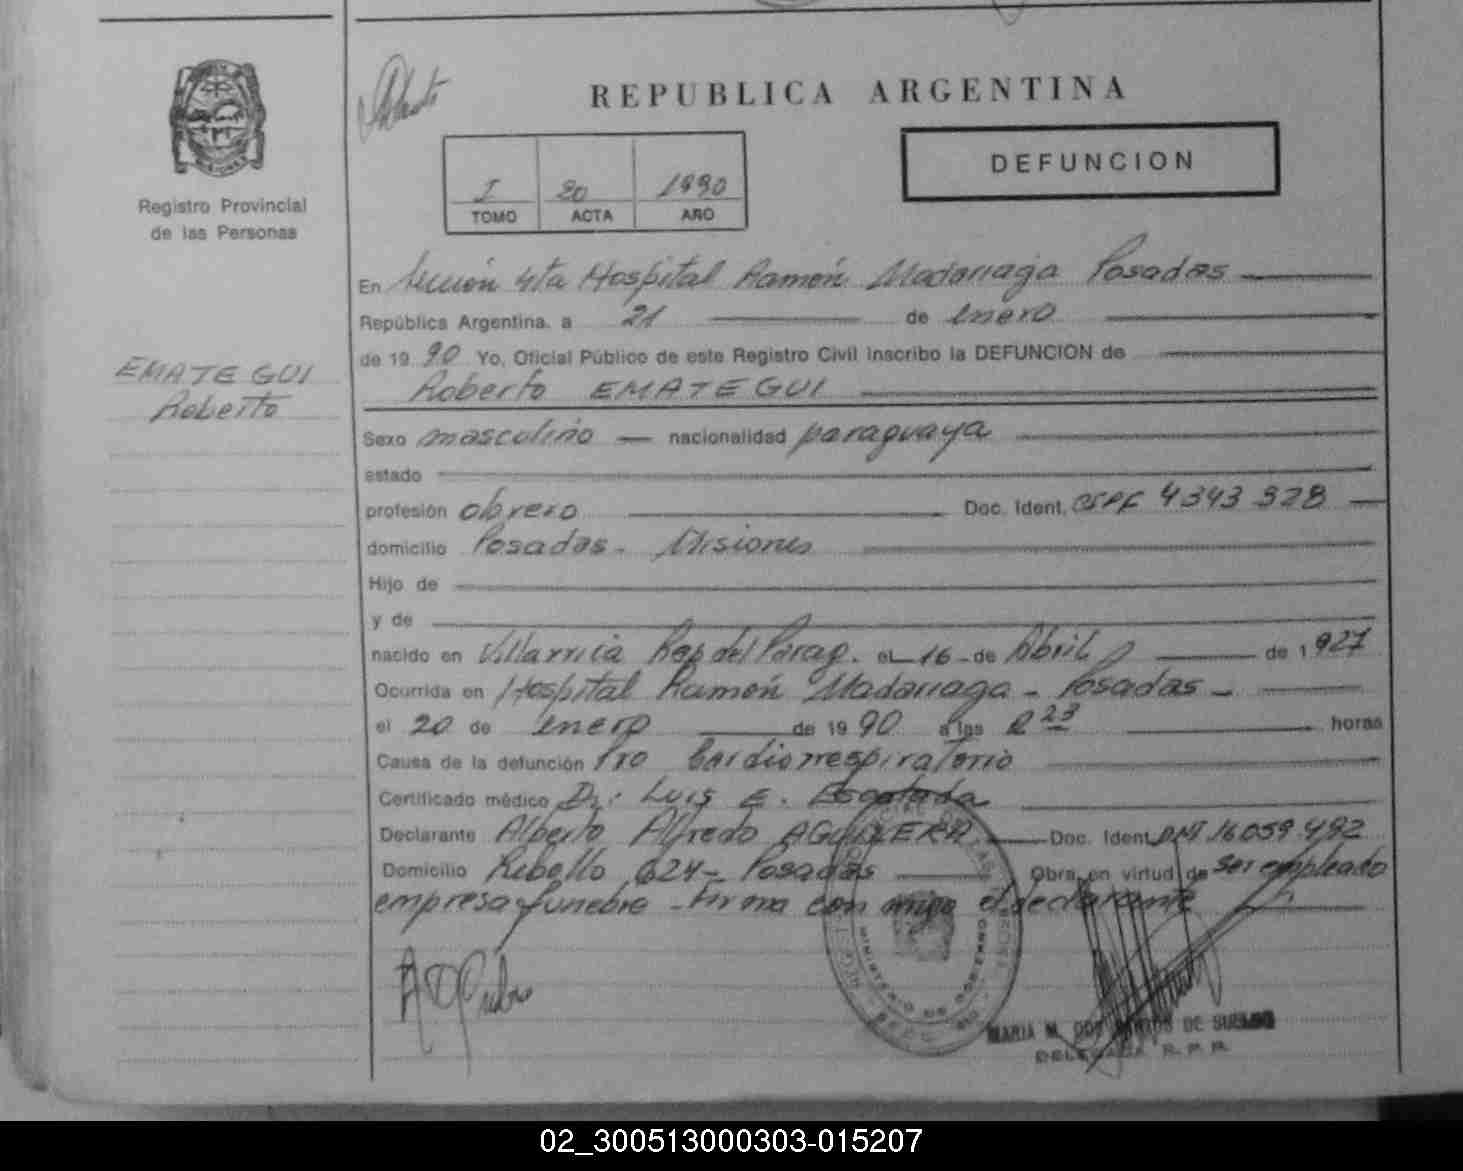 REPUBLICA ARGENTINA
DEFUNCION
I 80 1990
TOMO ACTA AÑO
Registro Provincial
de las Personas
EMATEGUI
Roberto
En Sección 4ta Hospital Ramón Madariaga Posadas
República Argentina, a 21 de enero
de 1990 Yo, Oficial Público de este Registro Civil inscribo la DEFUNCION de
Roberto EMATEGUI
Sexo masculino nacionalidad paraguaya
estado
profesión obrero Doc. Ident. 4343 328
domicilio Posadas - Misiones
Hijo de
y de
nacido en Villarrica Rep del Parag. el 16 de Abril de 1927
Ocurrida en Hospital Ramón Madariaga - Posadas -
el 20 de enero de 1990 a las 2 23 horas
Causa de la defunción Pro Cardiorrespiratorio
Certificado médico Dr. Luis E.
Declarante Alberto Alfredo AGUILERA Doc. Ident DNI 16059.492
Domicilio Rebollo 624 - Posadas Obra en virtud de ser empleado
empresa funebre - Firma con migo el declarante
MARIA M. DOS SANTOS DE
DELEGADA R. P. P.
02_300513000303-015207